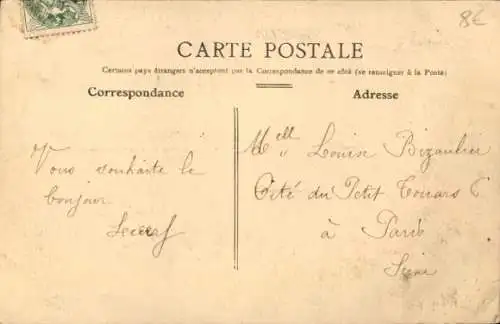 8€
CARTE POSTALE
Certains pays étrangers n'acceptent pas la Correspondance de ce côté (se renseigner à la Poste)
Correspondance
Adresse
Vous souhaite le
bonjour
Melle Louise
Cité du Petit
à Paris
Seine